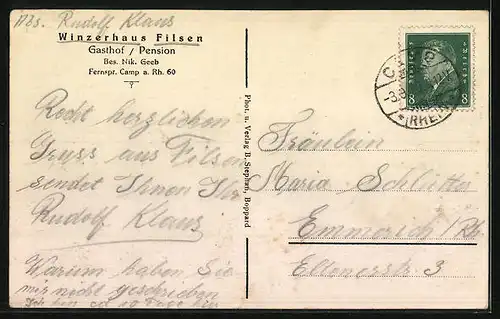 Abs. Rudolf Klaus
Winzerhaus Filsen
Gasthof / Pension
Bes. Nik. Geeb
Fernspr. Camp a. Rh. 60
Recht herzlichen
Gruss aus Filsen
sendet Ihnen Ihr
Rudolf Klaus
Warum haben Sie
mir nicht geschrieben
Ich bin
Phot. u. Verlag B. Stephan, Boppard
8 8
(RHEIN)
Fräulein
Maria Schlütter
Emmerich / Rh.
Eltenerstr 3